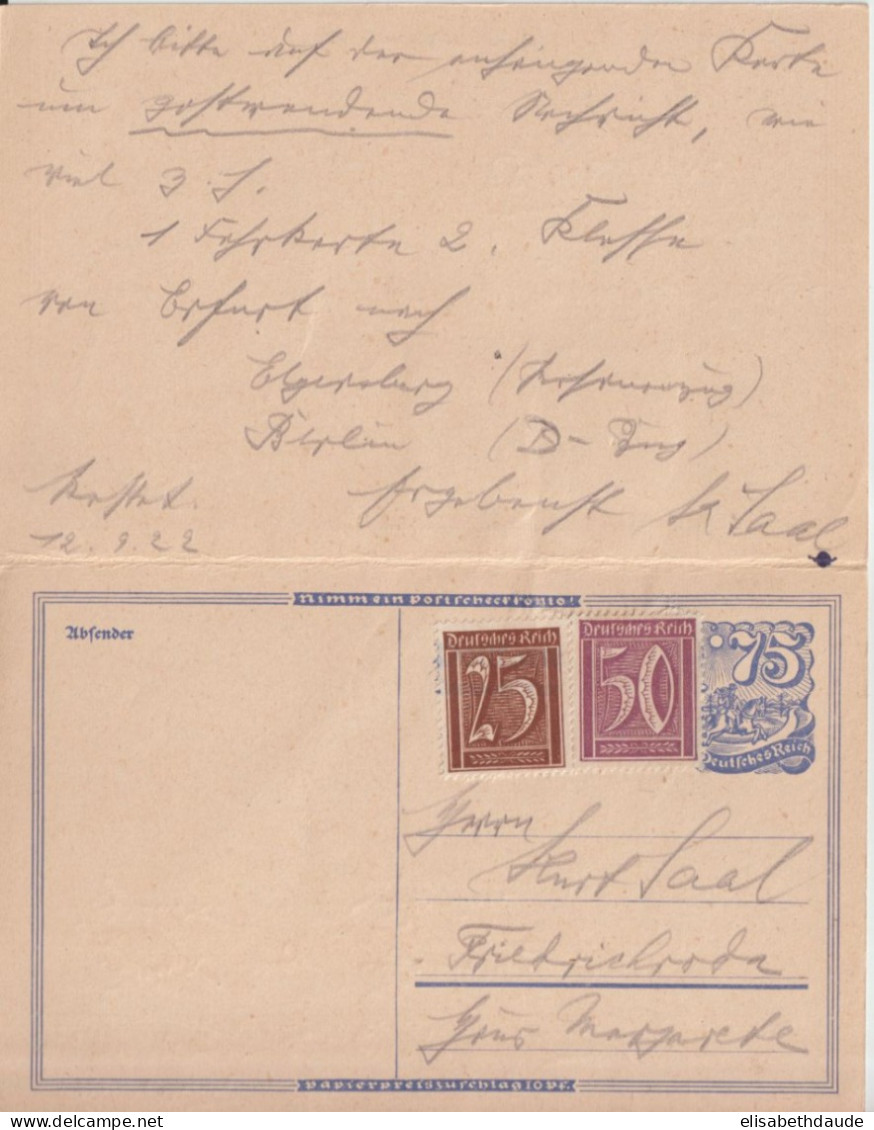 Ich bitte auf der anhängenden Karte
um postwendende Nachricht, wie
viel z. Z.
1 Fahrkarte 2. Klasse
von Erfurt nach
Elgersburg (Personenzug)
Berlin (D-Zug)
kostet. Ergebenst K Saal
12.9.22
Nimm ein Postscheckkonto!
Absender
Deutsches Reich
25
Deutsches Reich
50
75
Deutsches Reich
Herrn
Kurt Saal
Friedrichroda
Haus Margarete
Papierpreiszuschlag 10 Pf.
elisabethdaude